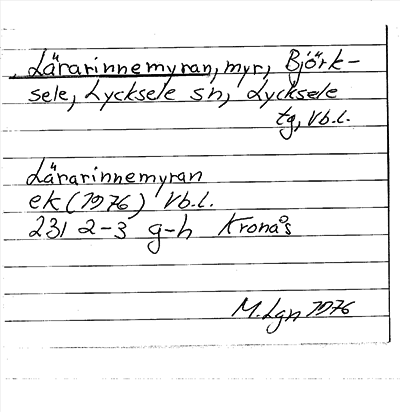 Lärarinnemyran, myr, Björk-
sele, Lycksele sn, Lycksele
tg, Vb.l.
Lärarinnemyran
ek (1976) Vb.l.
231 2-3 g-h Kronås
M.Lgn 1976